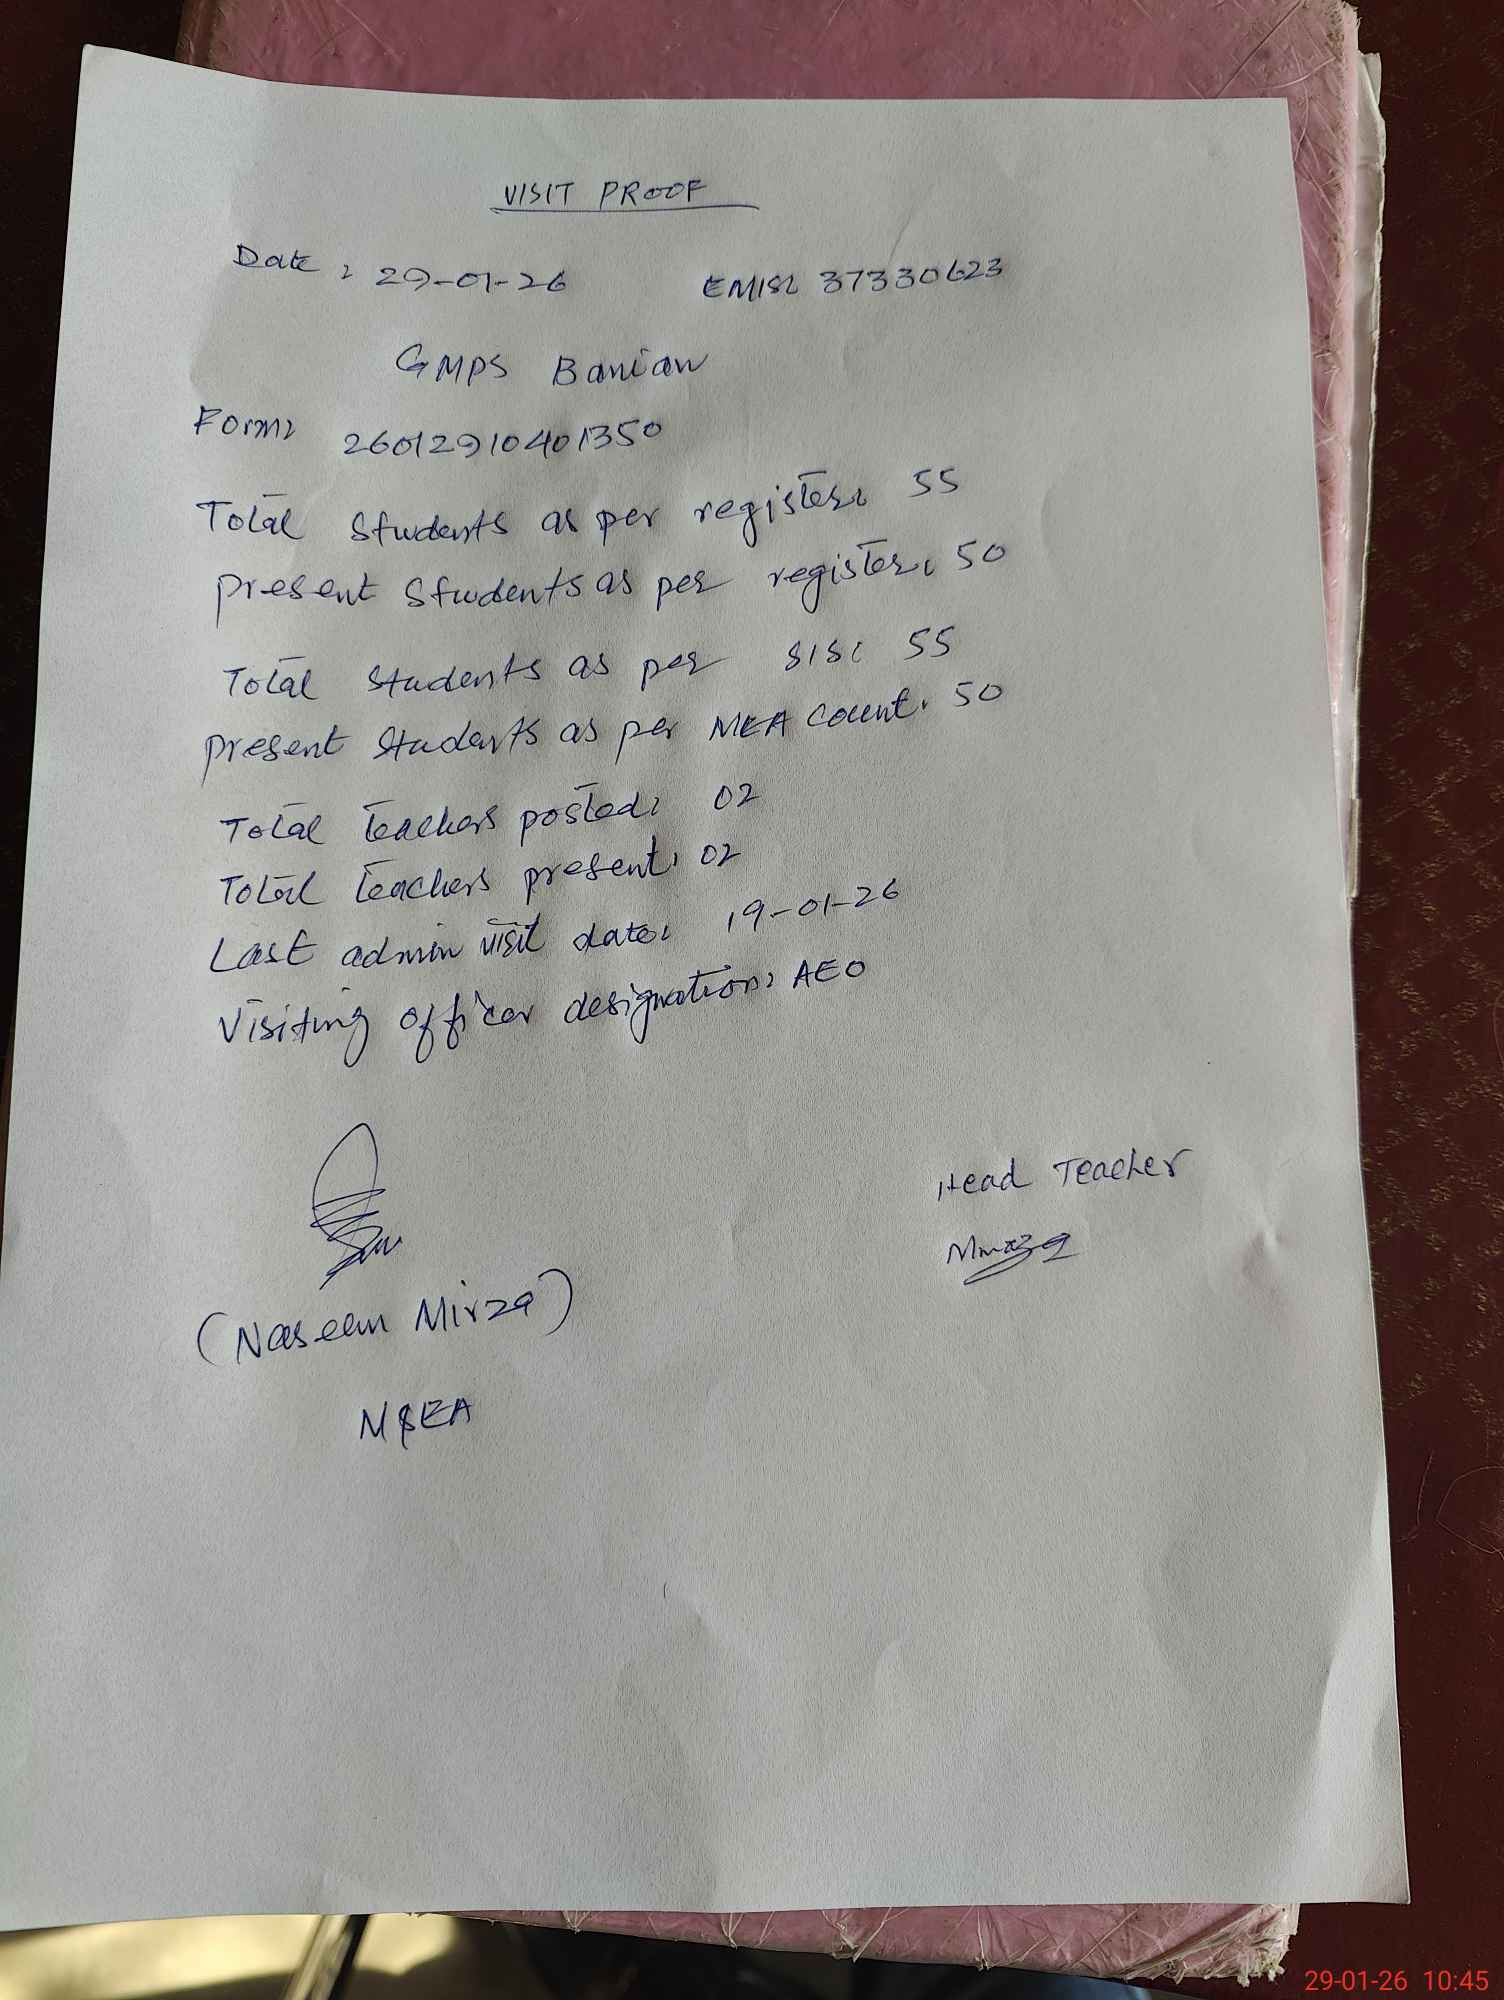 VISIT PROOF
Date: 29-01-26 EMIS: 37330623
GMPS Banian
Form: 26012910401350
Total Students as per register: 55
present Students as per register: 50
Total Students as per SIS: 55
present Students as per MEA count: 50
Total teachers posted: 02
Total teachers present: 02
Last admin visit date: 19-01-26
Visiting officer designation: AEO
Head Teacher
(Naseem Mirza)
MEA
29-01-26 10:45